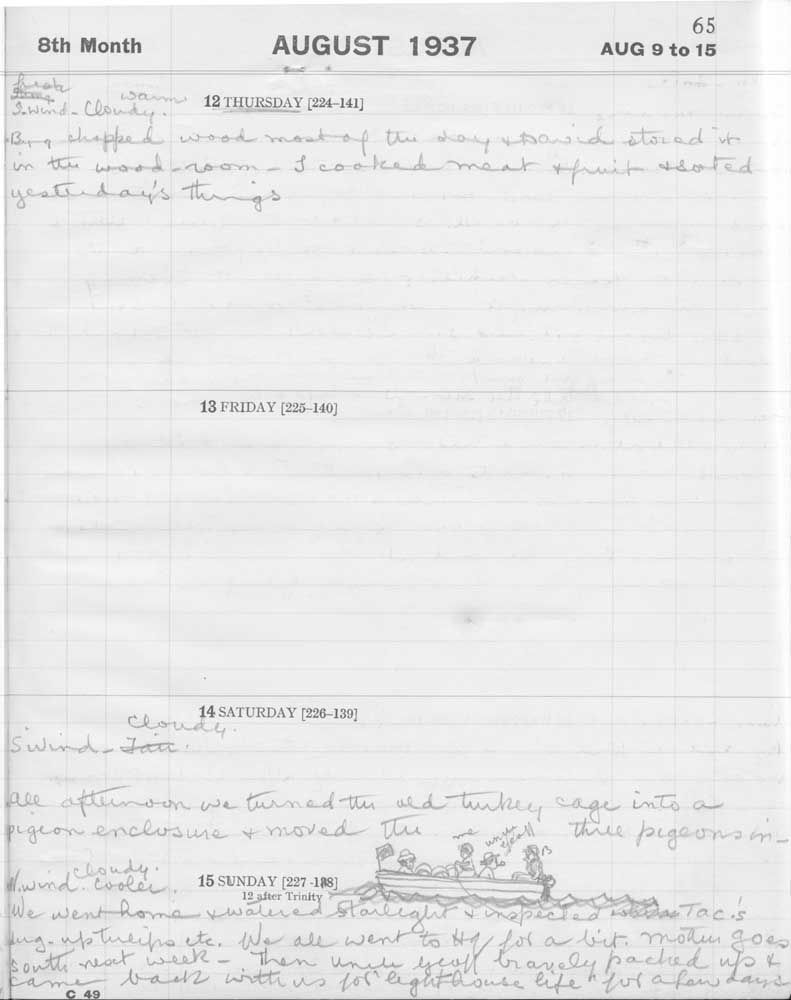 65
8th Month AUGUST 1937 AUG 9 to 15
warm
S. wind - Cloudy.
12 THURSDAY [224–141]
chopped wood most of the day & David stored it
in the wood-room - I cooked meat & fruit & sorted
yesterday's things
13 FRIDAY [225–140]
14 SATURDAY [226–139]
Cloudy.
S wind - Fair.
All afternoon we turned the old turkey cage into a
pigeon enclosure & moved the three pigeons in -
me uncle Geoff B
Cloudy.
N. wind. Cooler.
15 SUNDAY [227–138]
12 after Trinity
We went home & watered Starlight & inspected Tac's
dug-up tulips etc. We all went to Hq for a bit. Mother goes
south next week - Then uncle Geoff bravely packed up &
came back with us for "lighthouse life" for a few days
C 49